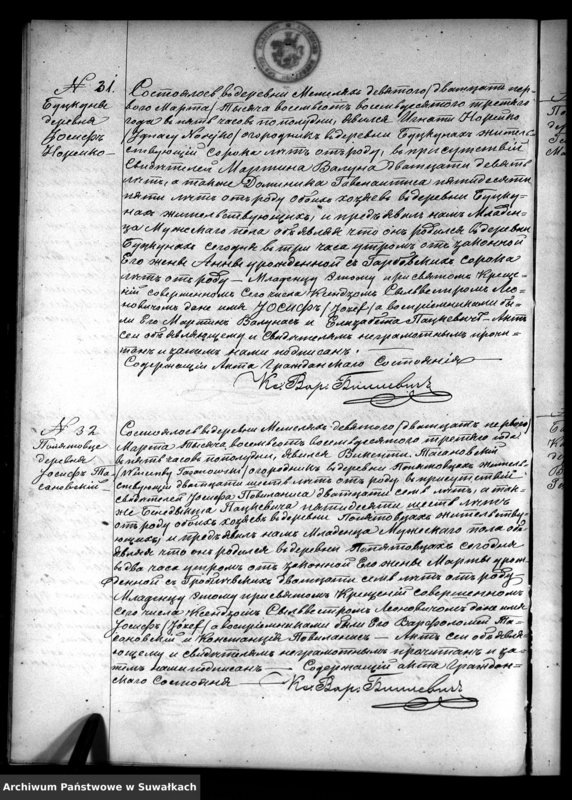 № 31.
Буцкуны
деревня
Іосифъ
Норейко
Состоялось въ деревни Метеляхъ девятого / двадцать пер-
вого Марта / Тысяча восемьсотъ восемьдесятъ третяго
года въ пять часовъ пополудни, явился Игнатій Норейко
огородникъ въ деревни Буцкунахъ житель-
ствующій сорока лѣтъ отъ роду, въ присутствіи
Свидѣтелей Мартина Валуна двадцати девяти
лѣтъ, а также Доминика пятидесяти
пяти лѣтъ отъ роду обоихъ хозяевъ въ деревни Буцку-
нахъ жительствующихъ, и предъявилъ намъ Младен-
ца Мужескаго пола объявляя что онъ родился въ деревни
Буцкунахъ сегодня въ три часа утромъ отъ законной
Его жены Анны урожденной съ сорока
лѣтъ отъ роду — Младенцу этому при святомъ Креще-
ніи совершенномъ Сего числа Ксендзомъ Сильвестромъ Лео-
новичомъ дано имя Іосифъ / Józef / а воспріемниками бы-
ли Его Мартинъ Валунасъ и Елизабета Пацкевичъ — Актъ
сей объявляющему и Свидѣтелямъ неграмотнымъ прочи-
танъ и затѣмъ нами подписанъ.
Содержащій Акта Гражданскаго Состоянія
Кс. Вар.
№ 32
Попятовце
деревня
Іосифъ Та-
сановскій
Состоялось въ деревни Метеляхъ девятого / двадцать первого /
Марта тысяча восемьсотъ восемьдесятъ третяго года
въ пять часовъ пополудни, явился Викентій Тасановскій
огородникъ въ деревни Попятовцахъ житель-
ствующій двадцати шесть лѣтъ отъ роду въ присутствіи
свидѣтелей Іосифа Повиланиса двадцати семь лѣтъ, а так-
же Бенедикта Пацкевича пятидесяти шесть лѣтъ
отъ роду обоихъ хозяевъ въ деревни Попятовцахъ жительству-
ющихъ, и предъявилъ намъ Младенца Мужескаго пола объ-
являя что онъ родился въ деревни Попятовцахъ сегодня
въ два часа утромъ отъ законной Его жены Марты урож-
денной съ двадцати семь лѣтъ отъ роду
Младенцу этому при святомъ Крещеніи совершенномъ
Сего числа Ксендзомъ Сильвестромъ Леоновичомъ дано имя
Іосифъ / Józef / а воспріемниками были Его Варфоломей Та-
сановскій и Констанція Повиланисъ — Актъ сей объявля-
ющему и свидѣтелямъ неграмотнымъ прочитанъ и за-
тѣмъ нами подписанъ — Содержащій Акта Граждан-
скаго Состоянія
Кс. Вар.
Archiwum Państwowe w Suwałkach